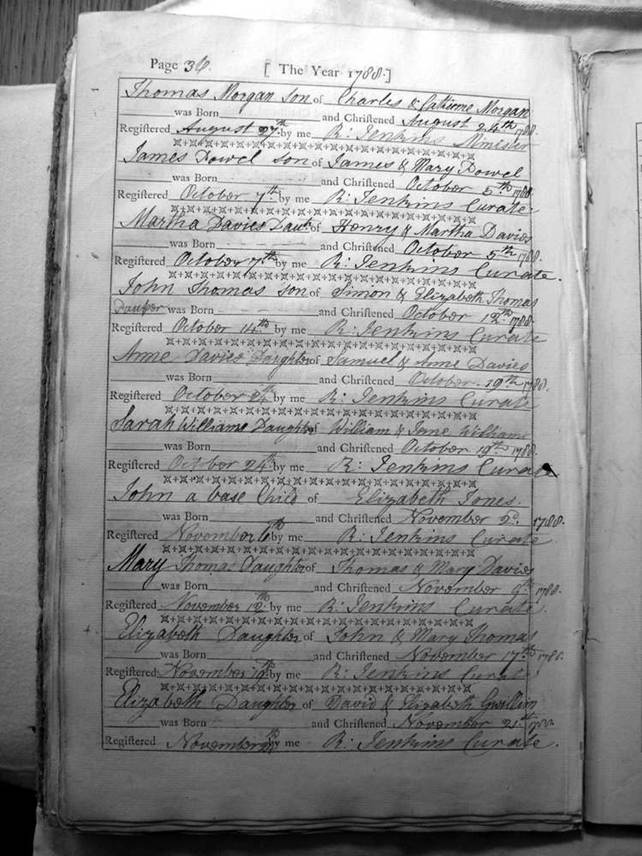 Page 36. [ The Year 1788.]
Thomas Morgan son of Charles & Catherine Morgan
was Born and Christened August 24th 1788.
Registered August 27th by me R: Jenkins Minister
James Powel son of James & Mary Powel
was Born and Christened October 5th 1788.
Registered October 7th by me R: Jenkins Curate
Martha Davies Dautr of Henry & Martha Davies
was Born and Christened October 5th 1788.
Registered October 7th by me R: Jenkins Curate
John Thomas son of Simon & Elizabeth Thomas
Pauper was Born and Christened October 12th 1788.
Registered October 14th by me R: Jenkins Curate
Anne Davies Daughter of Samuel & Anne Davies
was Born and Christened October 19th 1788.
Registered October by me R: Jenkins Curate
Sarah Williams Daughter of William & Jane William
was Born and Christened October 19th 1788.
Registered October 24th by me R: Jenkins Curate
John a base Child of Elizabeth Jones.
was Born and Christened November 2d. 1788.
Registered November 6th by me R: Jenkins Curate
Mary Thomas Daughter of Thomas & Mary Davies
was Born and Christened November 9th 1788.
Registered November 12th by me R: Jenkins Curate
Elizabeth Daughter of John & Mary Thomas
was Born and Christened November 17th 1788.
Registered November 19th by me R: Jenkins Curate
Elizabeth Daughter of David & Elizabeth Gwillim
was Born and Christened November 21st 1788.
Registered November by me R: Jenkins Curate.